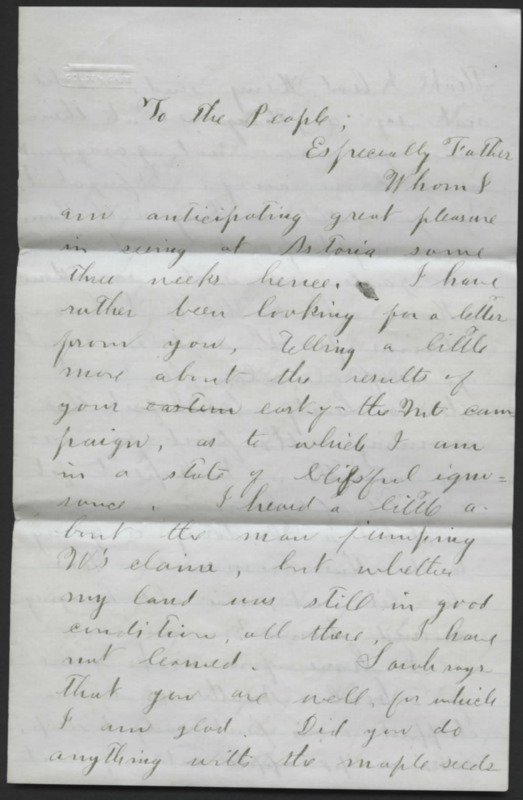 To the People;
Especially Father
Whom I
am anticipating great pleasure
in seeing at Astoria some
three weeks hence. I have
rather been looking for a letter
from you, telling a little
more about the results of
your eastern east of the Mt cam
paign, as to which I am
in a state of blissful igno=
rance. I heard a little a-
bout the man jumping
W's claim, but whether
my land was still in good
condition, all there, I have
not learned. Sarah says
that you are well, for which
I am glad. Did you do
anything with the maple seeds